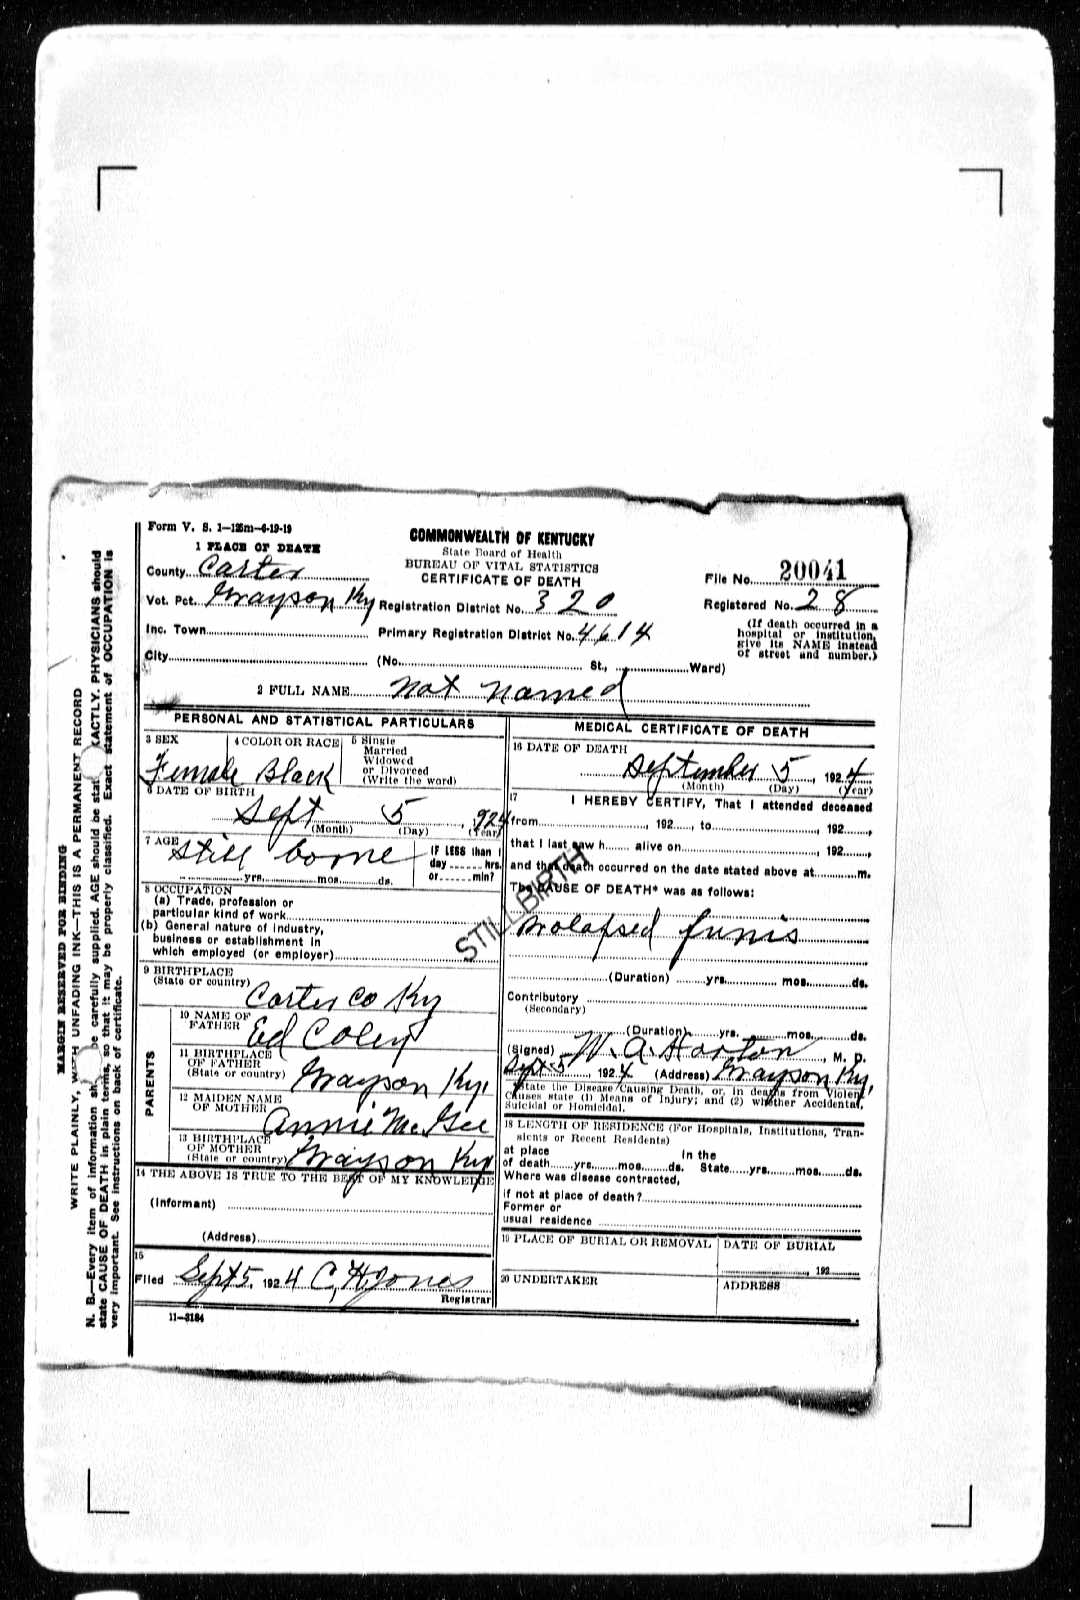 Form V. S. 1—125m—6-19-19
COMMONWEALTH OF KENTUCKY
State Board of Health
BUREAU OF VITAL STATISTICS
CERTIFICATE OF DEATH
1 PLACE OF DEATH
County Carter
File No. 20041
Vot. Pct. Grayson Ky Registration District No. 320
Registered No. 28
Inc. Town Primary Registration District No. 4614
(If death occurred in a
hospital or institution,
give its NAME instead
of street and number.)
City (No. St., Ward)
2 FULL NAME Not Named
PERSONAL AND STATISTICAL PARTICULARS
3 SEX
Female
4 COLOR OR RACE
Black
5 Single
Married
Widowed
or Divorced
(Write the word)
6 DATE OF BIRTH
Sept 5, 1924
(Month) (Day) (Year)
7 AGE
Still borne
yrs. mos. ds.
IF LESS than 1
day hrs.
or min?
8 OCCUPATION
(a) Trade, profession or
particular kind of work
(b) General nature of industry,
business or establishment in
which employed (or employer)
9 BIRTHPLACE
(State or country)
Carter Co Ky
PARENTS
10 NAME OF
FATHER
Ed Coley
11 BIRTHPLACE
OF FATHER
(State or country)
Grayson Ky.
12 MAIDEN NAME
OF MOTHER
Annie McGee
13 BIRTHPLACE
OF MOTHER
(State or country)
Grayson Ky
14 THE ABOVE IS TRUE TO THE BEST OF MY KNOWLEDGE
(Informant)
(Address)
15
Filed Sept 5, 1924 C, H. Jones
Registrar
11—3184
MEDICAL CERTIFICATE OF DEATH
16 DATE OF DEATH
September 5, 1924
(Month) (Day) (Year)
17
I HEREBY CERTIFY, That I attended deceased
from , 192 , to , 192 ,
that I last saw h alive on , 192 ,
and that death occurred on the date stated above at m.
The CAUSE OF DEATH* was as follows:
STILLBIRTH
Prolapsed funis
(Duration) yrs. mos. ds.
Contributory
(Secondary)
(Duration) yrs. mos. ds.
(Signed) W. A. Horton, M. D.
Sept 5, 1924 (Address) Grayson Ky.
*State the Disease Causing Death, or, in deaths from Violent
Causes state (1) Means of Injury; and (2) whether Accidental,
Suicidal or Homicidal.
18 LENGTH OF RESIDENCE (For Hospitals, Institutions, Tran-
sients or Recent Residents)
at place In the
of death yrs. mos. ds. State yrs. mos. ds.
Where was disease contracted,
if not at place of death?
Former or
usual residence
19 PLACE OF BURIAL OR REMOVAL
DATE OF BURIAL
, 192
20 UNDERTAKER
ADDRESS
MARGIN RESERVED FOR BINDING
WRITE PLAINLY, WITH UNFADING INK—THIS IS A PERMANENT RECORD
N. B.—Every item of information should be carefully supplied. AGE should be stated EXACTLY. PHYSICIANS should
state CAUSE OF DEATH in plain terms, so that it may be properly classified. Exact statement of OCCUPATION is
very important. See instructions on back of certificate.